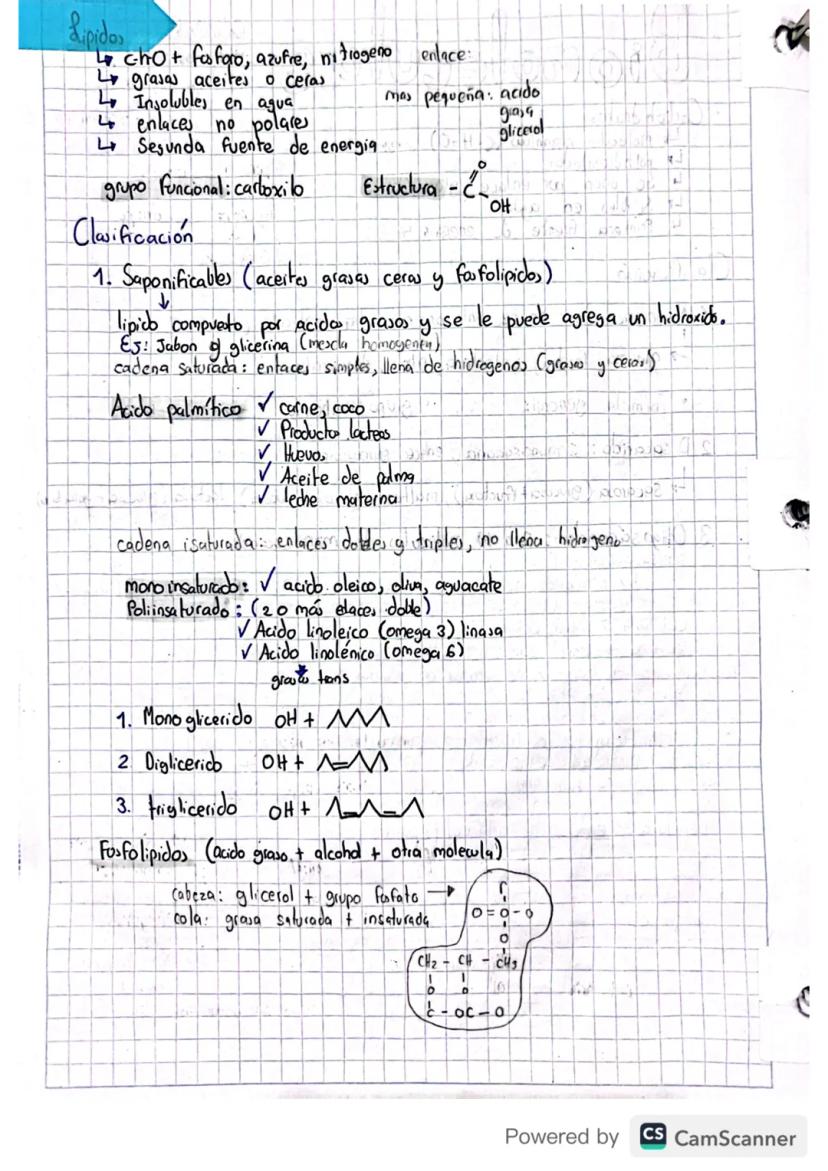 Lipidos
↳ c-h-O + fosforo, azufre, nitrogeno enlace:
↳ grasas aceites o ceras
↳ Insolubles en agua mas pequeña: acido
graso
↳ enlaces no polares glicerol
↳ Segunda fuente de energia
grupo funcional: carboxilo Estructura - C
O
OH
Clasificación
1. Saponificables (aceites grasas ceras y fosfolipidos)
↓
lipido compuesto por acidos grasos y se le puede agrega un hidroxido.
EJ: Jabon y glicerina (mezcla homogenea)
cadena saturada: enlaces simples, llena de hidrogenos (grasas y ceras)
Acido palmítico ✓ carne, coco
✓ Producto lacteos
✓ Huevos
✓ Aceite de palma
✓ leche materna
cadena isaturada: enlaces dobles y triples, no llena hidrogeno
mono insaturado: ✓ acido oleico, oliva, aguacate
Poliinsaturado: (2 o más elaces doble)
✓ Acido linoleico (omega 3) linasa
✓ Acido linolénico (omega 6)
trans
1. Mono glicerido OH +
2 Diglicerido OH +
3. trigliceriido OH +
Fosfolipidos (acido graso + alcohol + otra molecula)
cabeza: glicerol + grupo fosfato →
cola: grasa saturada + insaturada
O = O - O
O
CH2 - CH - CH3
O O
C - OC - O
Powered by CS CamScanner